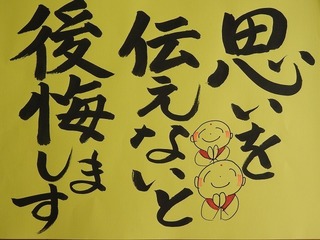 思いを
伝えないと
後悔します